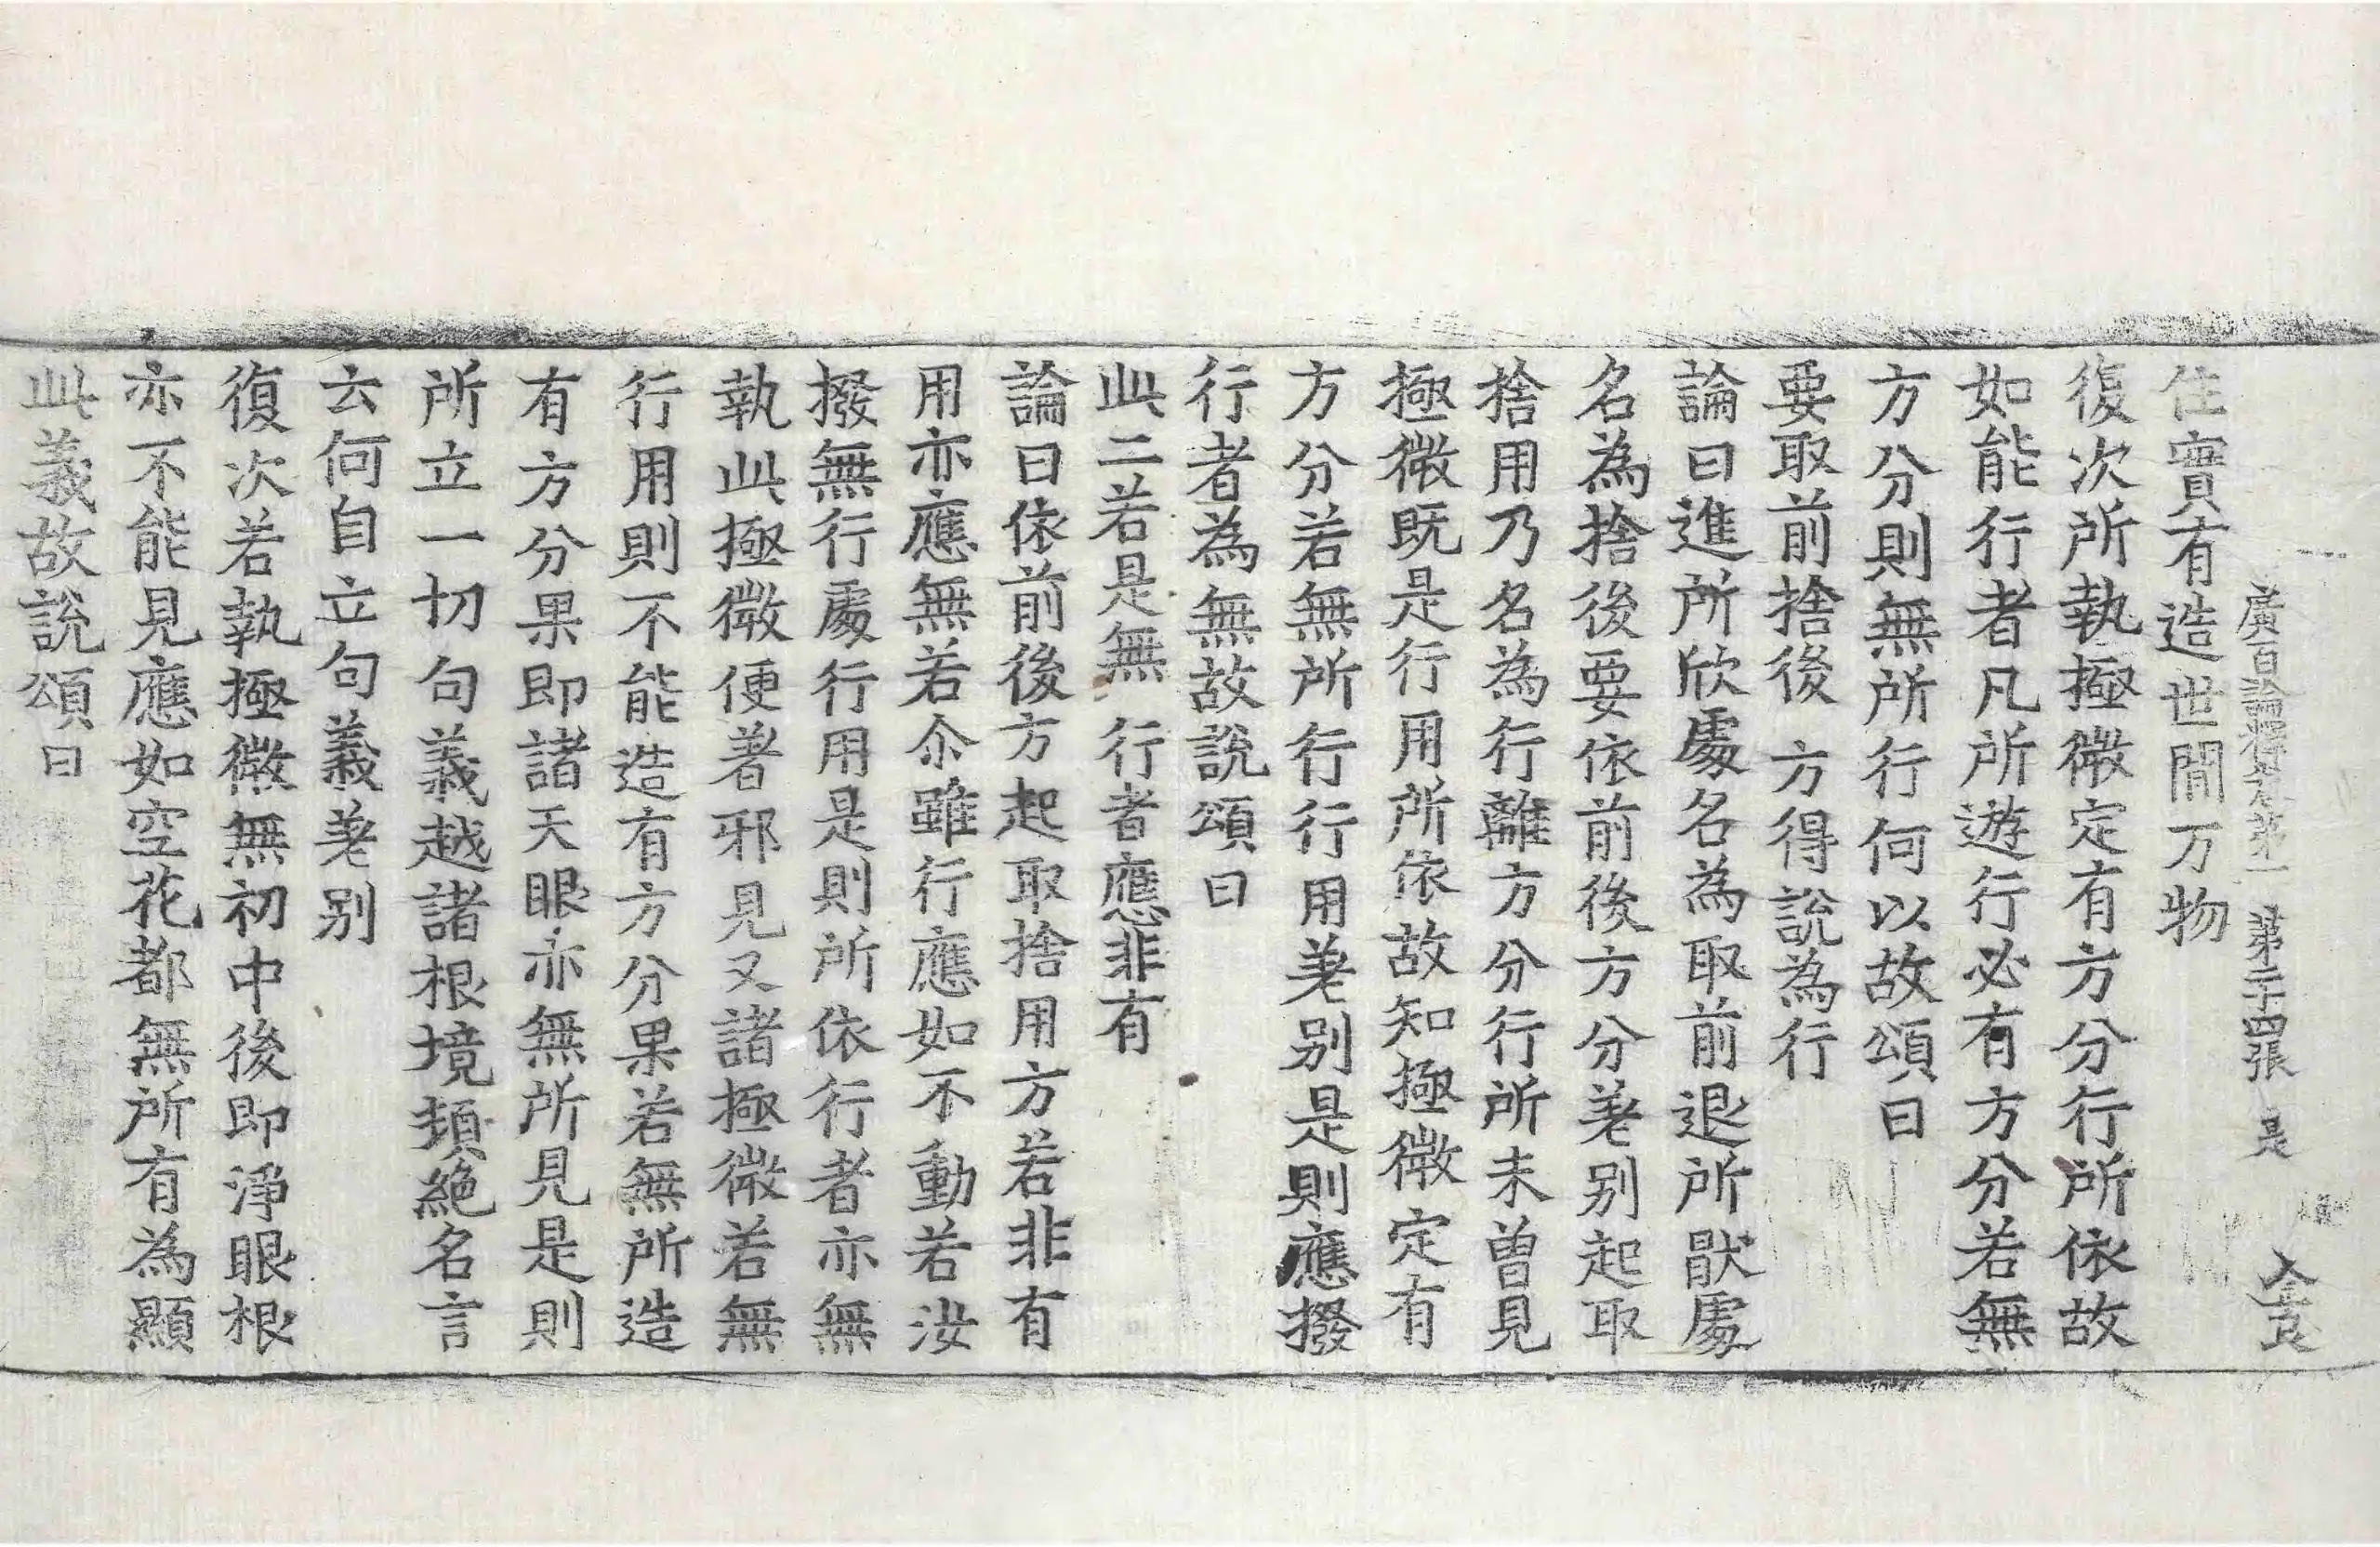 廣百論釋卷第一 第二十四張 是
住實有造世間万物
復次所執極微定有方分行所依故
如能行者凡所遊行必有方分若無
方分則無所行何以故頌曰
要取前捨後 方得說為行
論曰進所欣處名為取前退所猒處
名為捨後要依前後方分差别起取
捨用乃名為行離方分行所未曾見
極微既是行用所依故知極微定有
方分若無所行行用差别是則應撥
行者為無故說頌曰
此二若是無 行者應非有
論曰依前後方起取捨用方若非有
用亦應無若尒雖行應如不動若汝
撥無行處行用是則所依行者亦無
執此極微便著邪見又諸極微若無
行用則不能造有方分果若無所造
有方分果即諸天眼亦無所見是則
所立一切句義越諸根境頓絕名言
云何自立句義差别
復次若執極微無初中後即淨眼根
亦不能見應如空花都無所有為顯
此義故說頌曰